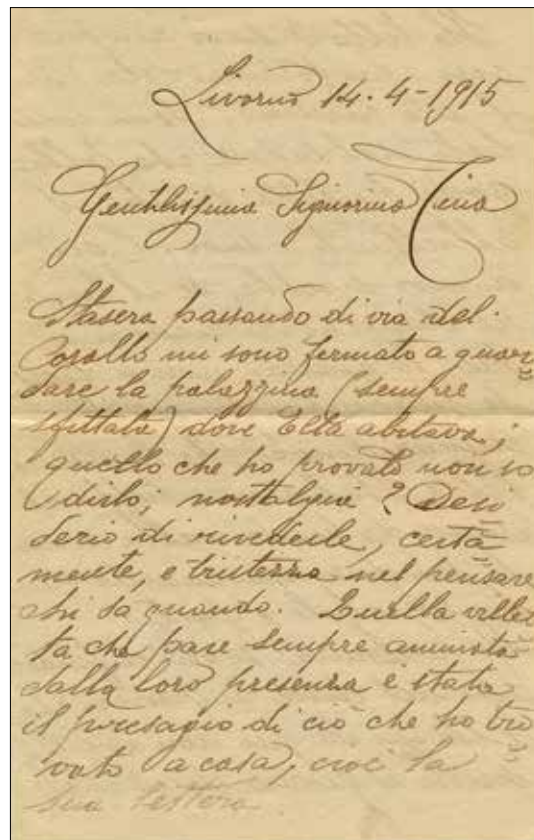 Livorno 14-4-1915
Gentilissima Signorina Tina
Stasera passando di via del
Corallo mi sono fermato a guar
dare la palazzina (sempre
sfittata) dove Ella abitava;
quello che ho provato non so
dirlo; nostalgia? Desi
derio di rivederle, certa
mente, e tristezza nel pensare
chi sa quando. Quella villet
ta che pare sempre animata
dalla loro presenza è stata
il presagio di ciò che ho tro
vato a casa, cioè la
sua lettera.